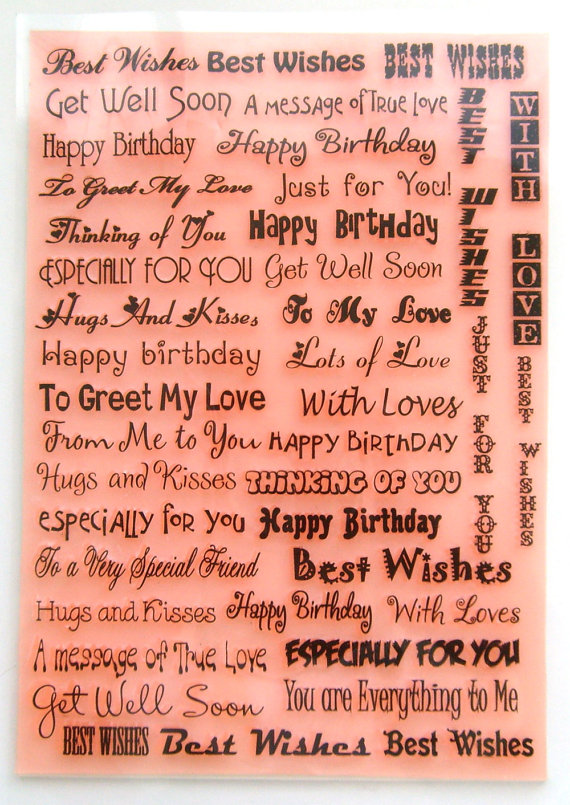 Best Wishes Best Wishes BEST WISHES
Get Well Soon A message of True Love
Happy Birthday Happy Birthday
To Greet My Love Just for You!
Thinking of You Happy Birthday
ESPECIALLY FOR YOU Get Well Soon
Hugs And Kisses To My Love
Happy birthday Lots of Love
To Greet My Love With Loves
From Me to You HAPPY BIRTHDAY
Hugs and Kisses THINKING OF YOU
especially for you Happy Birthday
To a Very Special Friend Best Wishes
Hugs and Kisses Happy Birthday With Loves
A message of True Love ESPECIALLY FOR YOU
Get Well Soon You are Everything to Me
BEST WISHES Best Wishes Best Wishes
BEST WISHES
WITH LOVE
JUST FOR YOU
BEST WISHES